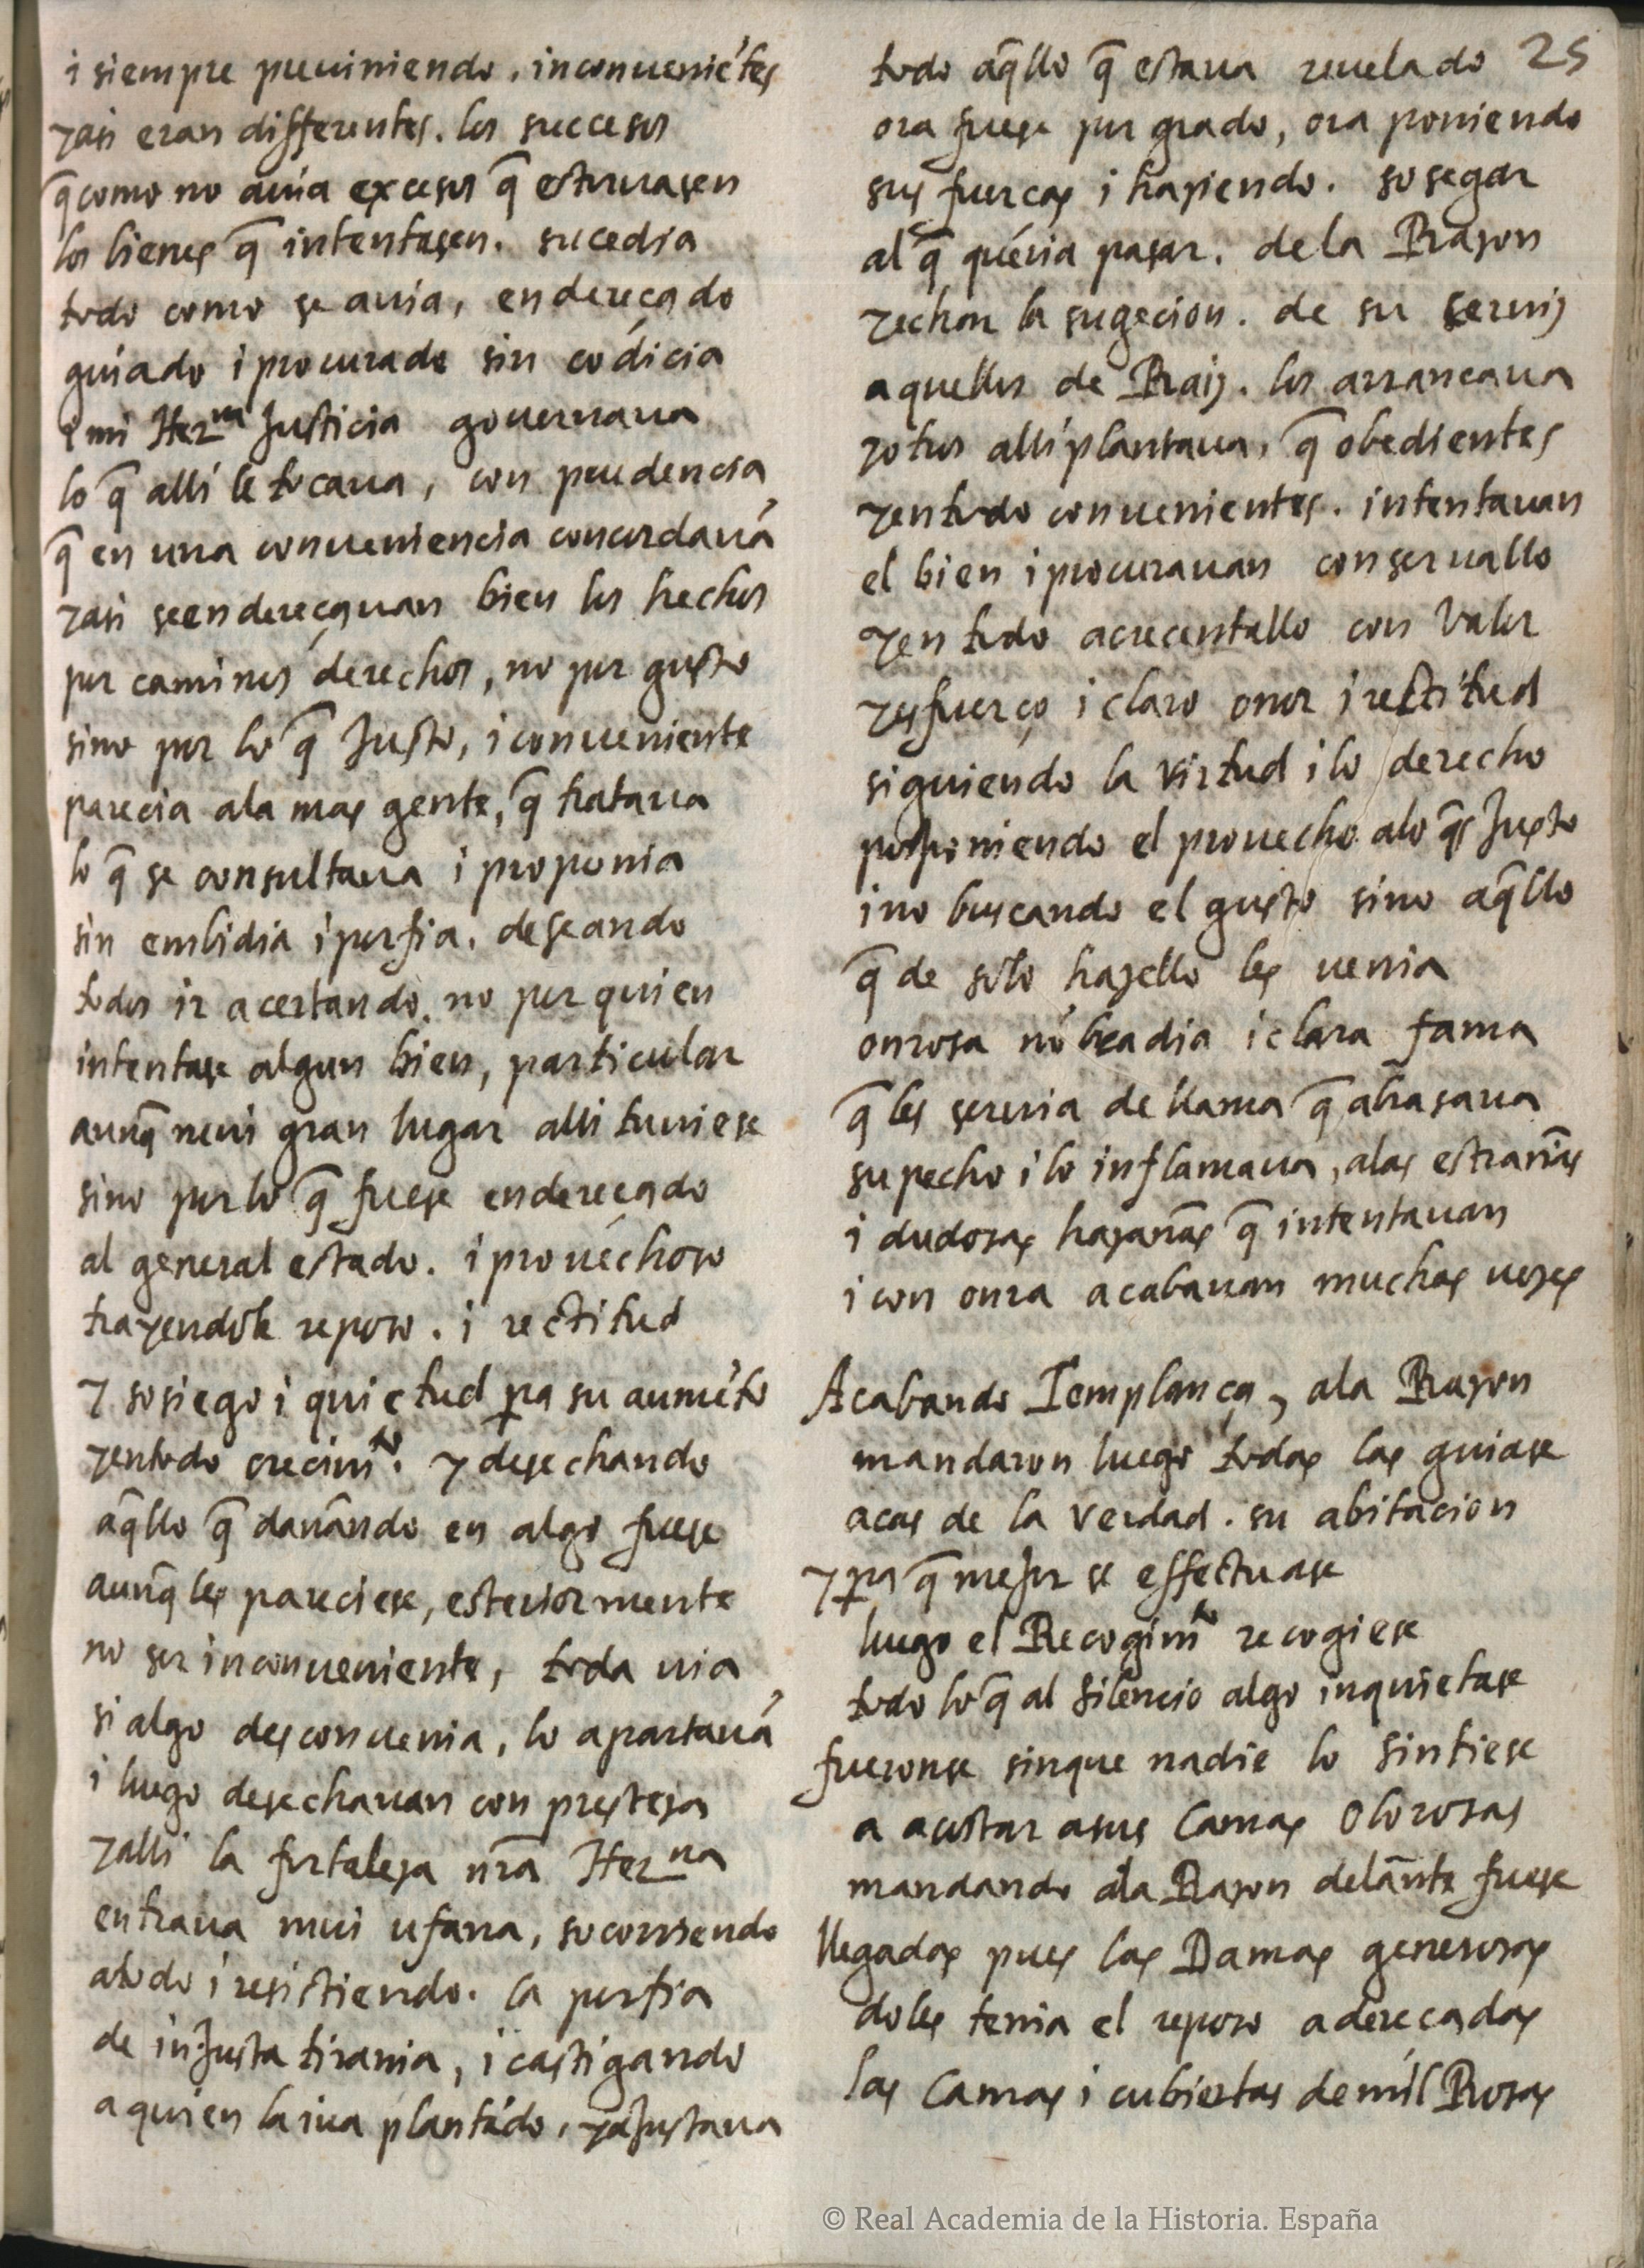 i siempre preuiniendo. inconueniẽtes
yasi eran differentes. los successos
q̃ como no auia excesos q̃ estoruasen
los bienes q̃ intentasen. sucedia
todo como se auia, endereçado
guiado i procurado sin codicia
i mi Her.na Justicia gouernaua
lo q̃ alli le tocaua, con prudencia
q̃ en una conueniencia concordauã
yasi seendereçauan bien los hechos
por caminos derechos, no por gusto
sino por lo q̃ Justo, i conueniente
parecia ala mas gente, q̃ trataua
lo q̃ se consultaua i proponia
sin embidia i porfia. deseando
todos ir acertando. no por quien
intentase algun bien, particular
aunq̃ mui gran lugar alli tuuiese
sino por lo q̃ fuese endereçado
al general estado. i prouechoso
trayendole reposo. i rectitud
y sosiego i quietud pa su aumẽto
yentodo crecim.to y desechando
aq̃llo q̃ dañando en algo fuese
aunq̃ les pareciese, esteriormente
no ser inconueniente, toda uia
si algo desconuenia, lo apartauã
i luego desechauan con presteza
yalli la fortaleza nr̃a Her.na
entraua mui ufana, socorriendo
atodo i resistiendo. la porfia
de inJusta tirania, i castigando
a quien la iua plantãdo, yaJustaua
todo aq̃llo q̃ estaua reuelado 25
ora fuese por grado, ora poniendo
sus fuerças i haziendo. sosegar
al q̃ queria pasar. de la Razon
yechar la sugecion. de su seruiz
aquellos de Raiz. los arrancaua
yotros alli plantaua, q̃ obedientes
yentodo conuenientes. intentauan
el bien i procurauan conseruallo
yen todo acrecentallo con Valor
yesfuerço i claro onor i rectitud
siguiendo la virtud i lo derecho
posponiendo el prouecho alo q̃s Justo
i no buscando el gusto sino aq̃llo
q̃ de solo hazello les uenia
onrosa nõbradia i clara fama
q̃ les seruia de llama q̃ abrasaua
su pecho i lo inflamaua, alas estrañas
i dudosas hazañas q̃ intentauan
i con onra acabauan muchas uezes
Acabando Templança, ala Razon
mandaron luego todas las guiase
acas de la verdad. su abitacion
y pa q̃ mejor se effectuase
luego el Recogim.to recogiese
todo lo q̃ al silencio algo inquietase
fueronse sinque nadie lo sintiese
a acostar asus Camas Olorosas
mandando ala Razon delante fuese
llegadas pues las Damas generosas
dõles tenia el reposo adereçadas
las Camas i cubiertas de mil Rosas
© Real Academia de la Historia. España